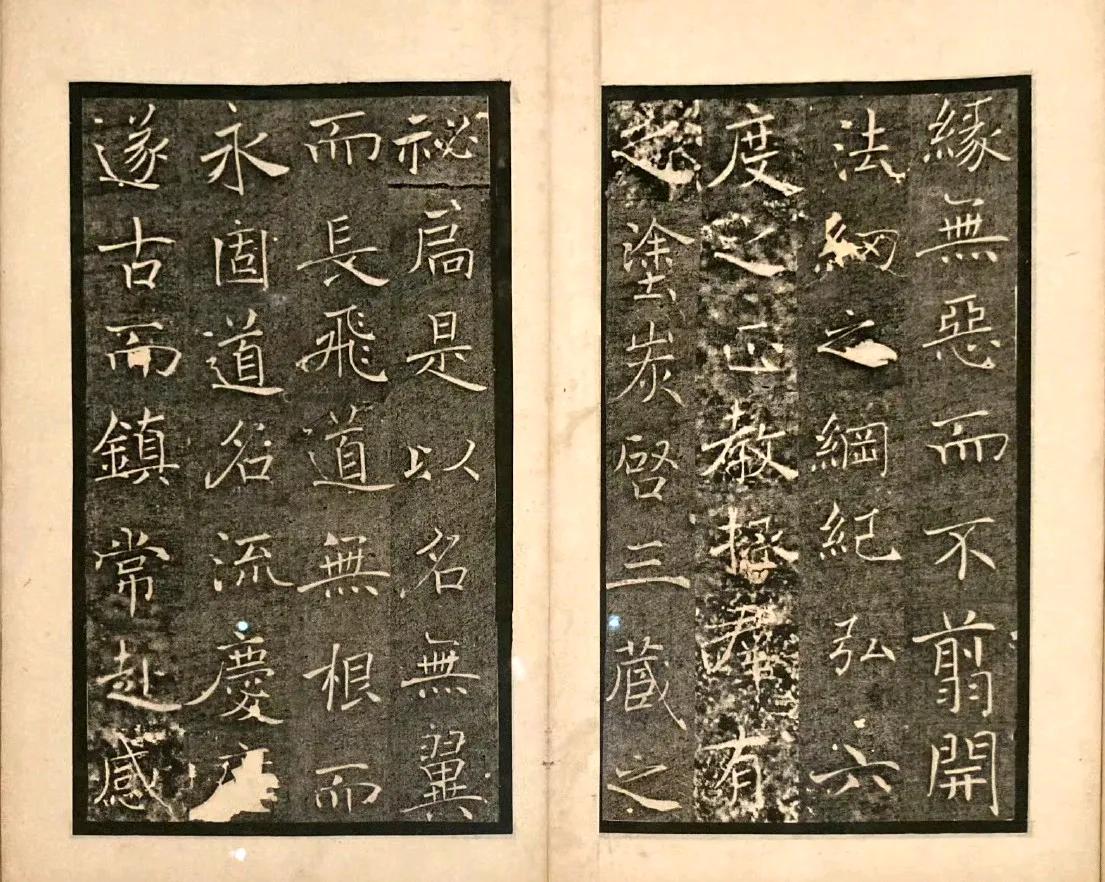 緣無惡而不翦開
法網之綱紀弘六
度之正教拯羣有
之塗炭啓三藏之
祕扃是以名無翼
而長飛道無根而
永固道名流慶
遂古而鎮常赴感